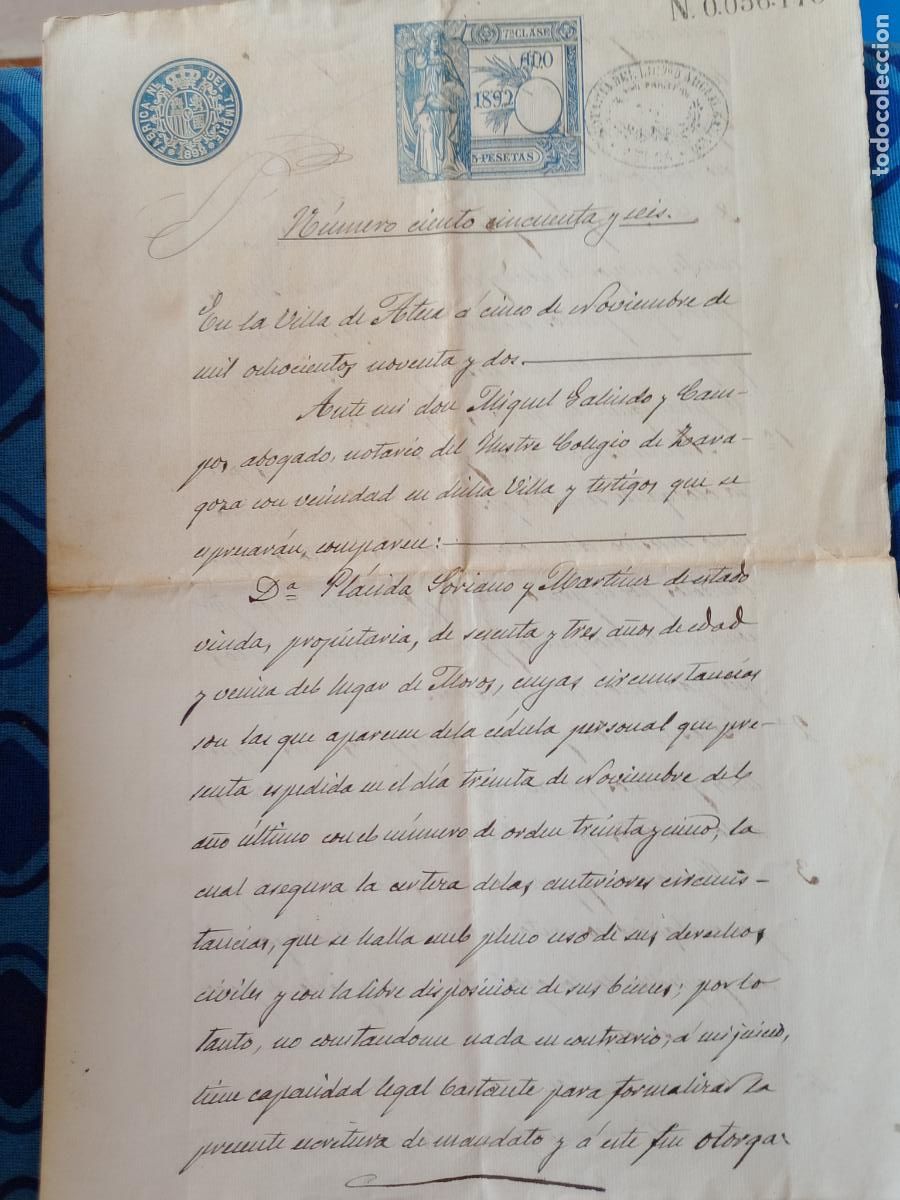 N. 0.056.170
FABRICA NL. DEL TIMBRE
1892
7ª CLASE
AÑO
1892
5 PESETAS
todocoleccion
Número ciento cincuenta y seis.
En la Villa de Ateca á cinco de Noviembre de
mil ochocientos noventa y dos.
Ante mi don Miguel Galindo y Cam-
pos, abogado, notario del Ilustre Colegio de Zara-
goza con vecindad en dicha Villa y testigos que se
espresarán, comparece:
Dª Plácida Soriano y Martínez de estado
viuda, propietaria, de sesenta y tres años de edad
y vecina del lugar de Moros, cuyas circunstancias
son las que aparecen dela cédula personal que pre-
senta espedida en el día treinta de Noviembre del
año último con el número de orden treinta y cinco, la
cual asegura la certeza delas anteriores circuns-
tancias, que se halla enel pleno uso de sus derechos
civiles y con la libre disposicion de sus bienes; por lo
tanto, no constandome nada en contrario, á mi juicio,
tiene capacidad legal bastante para formalizar la
presente escritura de mandato y á este fin otorga: